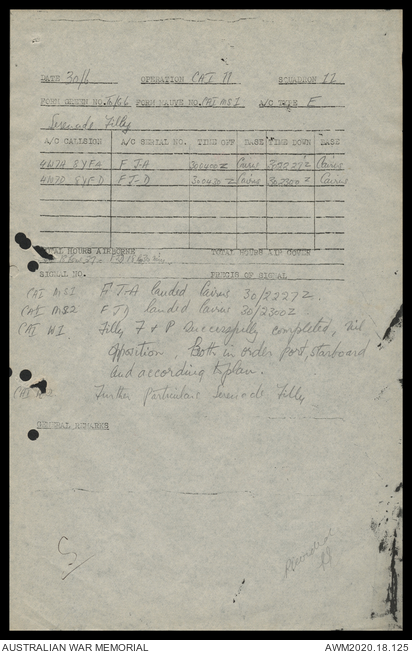 DATE 30/6 OPERATION CAI 11 SQUADRON 11
FORM GREEN NO. FORM MAUVE NO. CAI MS1 A/C TYPE E
Serenade Filly
A/C CALLSIGN A/C SERIAL NO. TIME OFF BASE TIME DOWN BASE
8YFA F J-A 300400Z Cairns 302227Z Cairns
8YFD F J-D 300430Z Cairns 302300Z Cairns
TOTAL HOURS AIRBORNE TOTAL HOURS AIR COVER
SIGNAL NO. PRECIS OF SIGNAL
CAI MS1 F J-A landed Cairns 30/2227Z.
CAI MS2 F J D landed Cairns 30/2300Z
CAI W1 Filly F & P successfully completed, nil
opposition, Both in order port, starboard
and according to plan.
Further particulars Serenade Filly
GENERAL REMARKS
AUSTRALIAN WAR MEMORIAL AWM2020.18.125